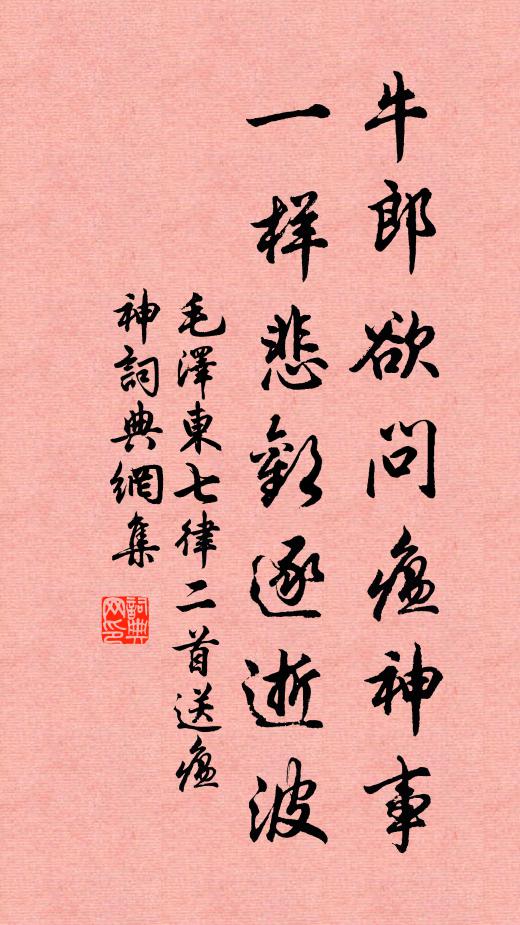 牛郎欲问瘟神事
一样悲歡逐逝波
毛澤東七律二首送瘟
神詞典網集
詞典网印